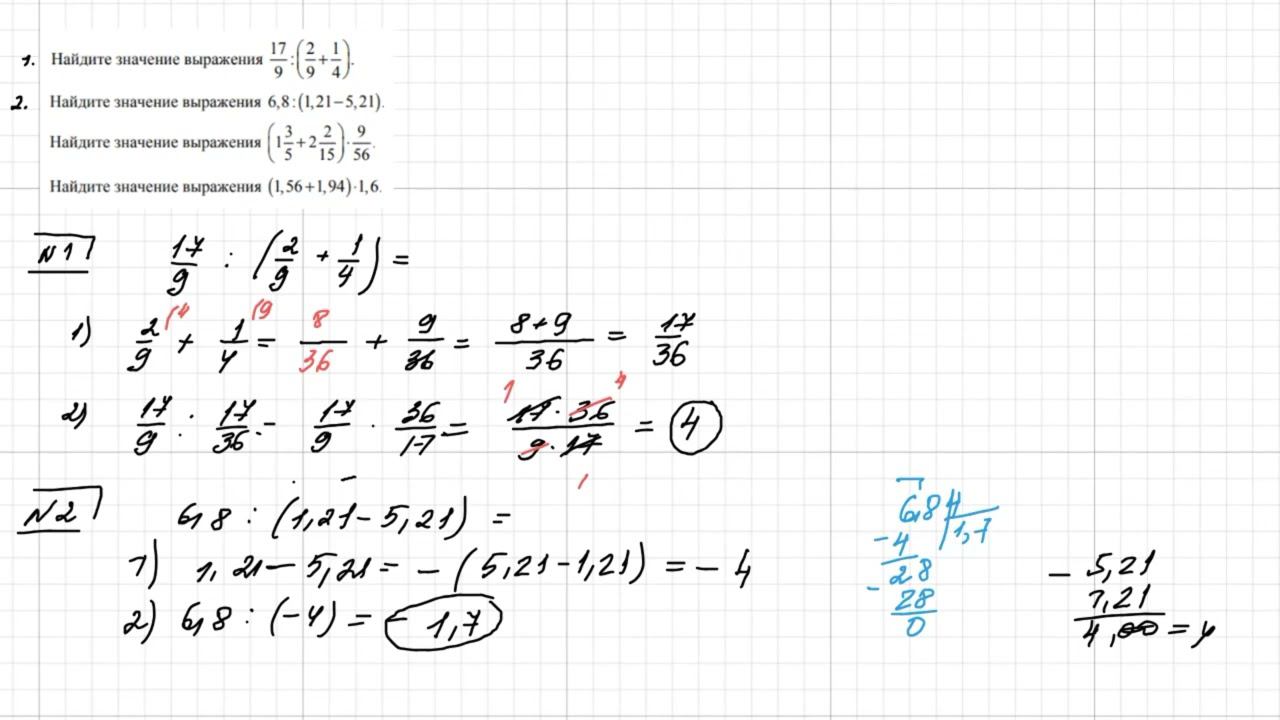 1. Найдите значение выражения 17/9 : (2/9 + 1/4).
2. Найдите значение выражения 6,8 : (1,21 − 5,21).
Найдите значение выражения (1 3/5 + 2 2/15) · 9/56.
Найдите значение выражения (1,56 + 1,94) · 1,6.
N1 17/9 : (2/9 + 1/4) =
1) 2/9 (4 + 1/4 (9 = 8/36 + 9/36 = (8+9)/36 = 17/36
2) 17/9 : 17/36 = 17/9 · 36/17 = (17 · 36)/(9 · 17) = 4
1 4
1
N2 6,8 : (1,21 − 5,21) =
1) 1,21 − 5,21 = − (5,21 − 1,21) = − 4
2) 6,8 : (−4) = − 1,7
6,8 4
− 4 1,7
− 28
28
0
− 5,21
1,21
4,00 = 4